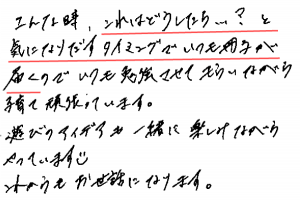 こんな時、これはどうしたら…？と
気になりだすタイミングでいつも冊子が
届くのでいつも勉強させてもらいながら
子育て頑張っています。
遊びのアイデアも一緒に楽しみながら
やっています☺
これからもお世話になります。